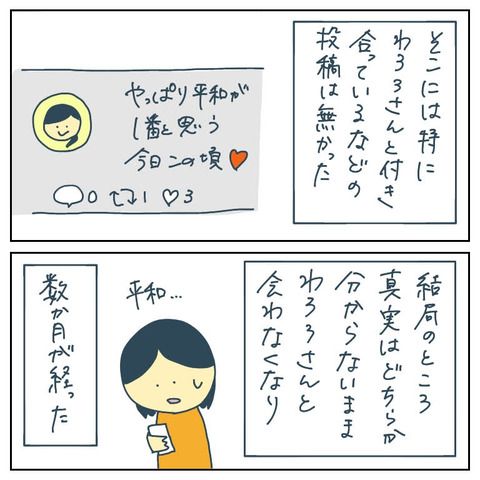 そこには特に
わろろさんと付き
合っているなどの
投稿は無かった
やっぱり平和が
1番と思う
今日この頃♥
0 1 ♡3
結局のところ
真実はどちらか
分からないまま
わろろさんと
会わなくなり
平和…
数か月が経った